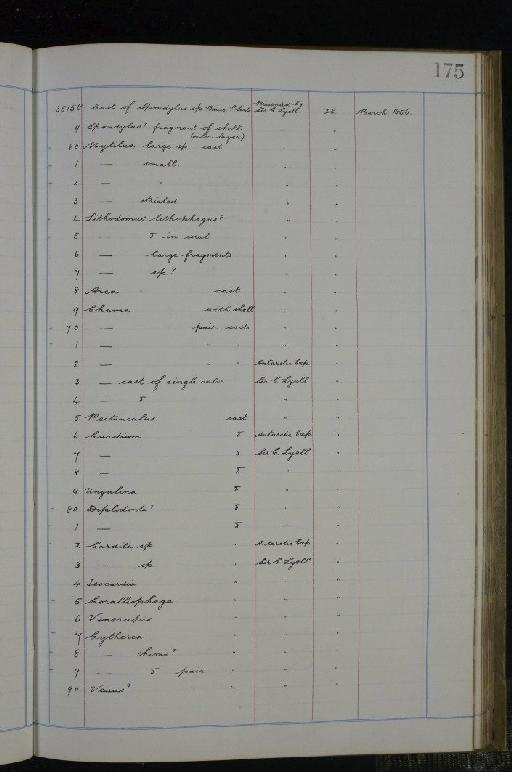 175
Cast of Spondylus sp Presented by Sir C. Lyell 22 March 1856.
9 Spondylus? fragment of shell
(inner layer)
60 Mytilus large sp. cast "
1 — small. "
2 — " "
3 — striated "
4 Lithodomus lithophagus? "
5 — 5 in coral "
6 — large fragments "
7 — sp? "
8 Arca cast "
9 Chama with shell "
70 — pair casts "
1 — " "
2 — " Antarctic Exp "
3 — cast of single valve Sir C Lyell "
4 — 5 " "
5 Pectunculus cast " "
6 Cardium 5 Antarctic Exp "
7 — 3 Sir C. Lyell "
8 — 5 " "
9 Ungulina 5 " "
80 Diplodonta? 8 " "
1 — 5 " "
2 Cardita sp " Antarctic Exp "
3 sp " Sir C Lyell "
4 Isocardia " " "
5 Coralliophaga " " "
6 Venerupis " " "
7 Cytherea " " "
8 — " " "
9 — 5 pair " " "
90 Venus? " " "